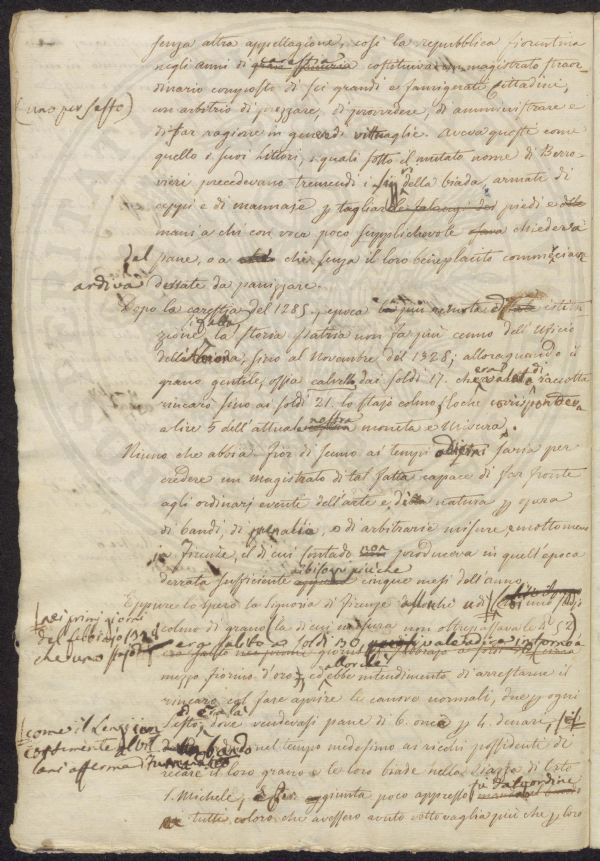 senza altra appellagione, così la repubblica fiorentina
negli anni di carestia costituiva un magistrato straor-
dinario composto di sei grandi e famigerati cittadini,
(uno per sesto)
con arbitrio di prezzare, di provvedere, di amministrare e
di far ragione in genere di vittuaglie. Aveva queste come
quello i suoi littori, i quali sotto il mutato nome di Berro-
vieri precedevano tremendi i Sig.ri della biada, armati di
ceppi e di mannaje p tagliare piedi e
mani a chi con voce poco supplichevole chiedeva
del pane, o a chi senza il loro beneplacito cominciare
ardiva dessate da panizzare.
Dopo la carestia del 1285, epoca istitu-
zione, la storia patria non fa più cenno dell'Uficio
della Biada, sino al Novembre del 1328; alloraquando il
grano gentile, ossia calvello dai soldi 17. che era valuto di raccolta
rincarò sino ai soldi 21. lo stajo colmo, loche corrispondeva
a lire 5 dell'attuale nostra moneta e misura.
Niuno che abbia fior di senno ai tempi odierni saria per
credere un magistrato di tal fatta capace di far fronte
agli ordinarj eventi dell'arte e della natura p opera
di bandi, di penalità, o di arbitrarie misure, e molto meno
in Firenze, il di cui contado non produceva in quell'epoca
derrata sufficiente ai bisogni più che cinque mesi dell'anno.
Eppure lo sperò la signoria di Firenze allorchè udì uno stajo
colmo di grano la di cui misura non oltrepassava le £ (2)
nei primi giorni
del febbrajo 1329
che uno stajo
era salito a soldi 30, valeva in circa intorno a
mezzo fiorino d'oro; ed ebbe intendimento di arrestarne il
rincaro col fare aprire le canove normali, due p ogni
sesto, dove vendevasi pane di 6. oncie p 4. denari,
come il Lenzi con
nel tempo medesimo ai ricchi possidenti di
recare il loro grano e le loro biade nella piazza di Orto
S. Michele, aggiunta poco appresso fu d'ordine
a tutti coloro che avessero avuto vettovaglia più che p loro